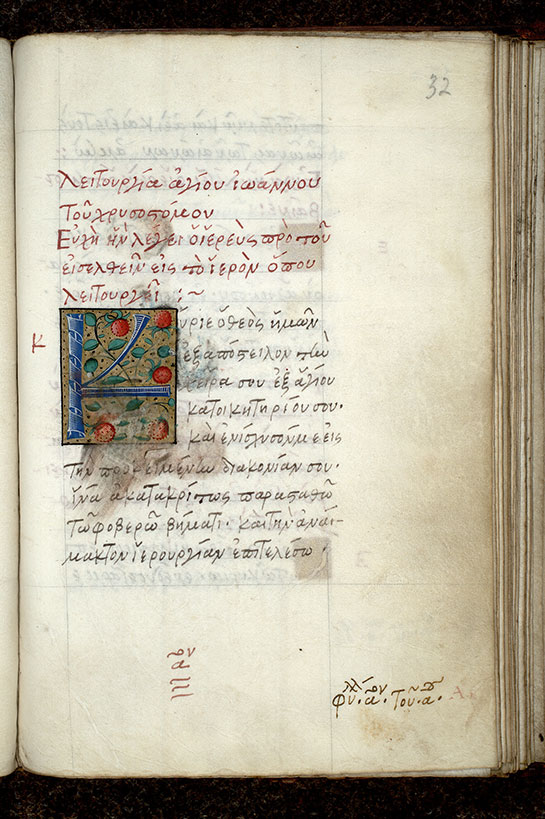 32
λειτουργία ἁγίου ἰωάννου
τοῦ χρυσοστόμου
Εὐχὴ ἣν λέγει ὁ ἱερεὺς πρὸ τοῦ
εἰσελθεῖν εἰς τὸ ἱερὸν ὅπου
λειτουργεῖ :~
κ
Κύριε ὁ θεὸς ἡμῶν
ἐξαπόστειλον τὴν
χεῖρα σου ἐξ ἁγίου
κατοικητηρίου σου·
καὶ ἐνίσχυσόν με εἰς
τὴν προκειμένην διακονίαν σου·
ἵνα ἀκατακρίτως παρασταθῶ
τῷ φοβερῷ βήματι· καὶ τὴν ἀναί-
μακτον ἱερουργίαν ἐπιτελέσω·